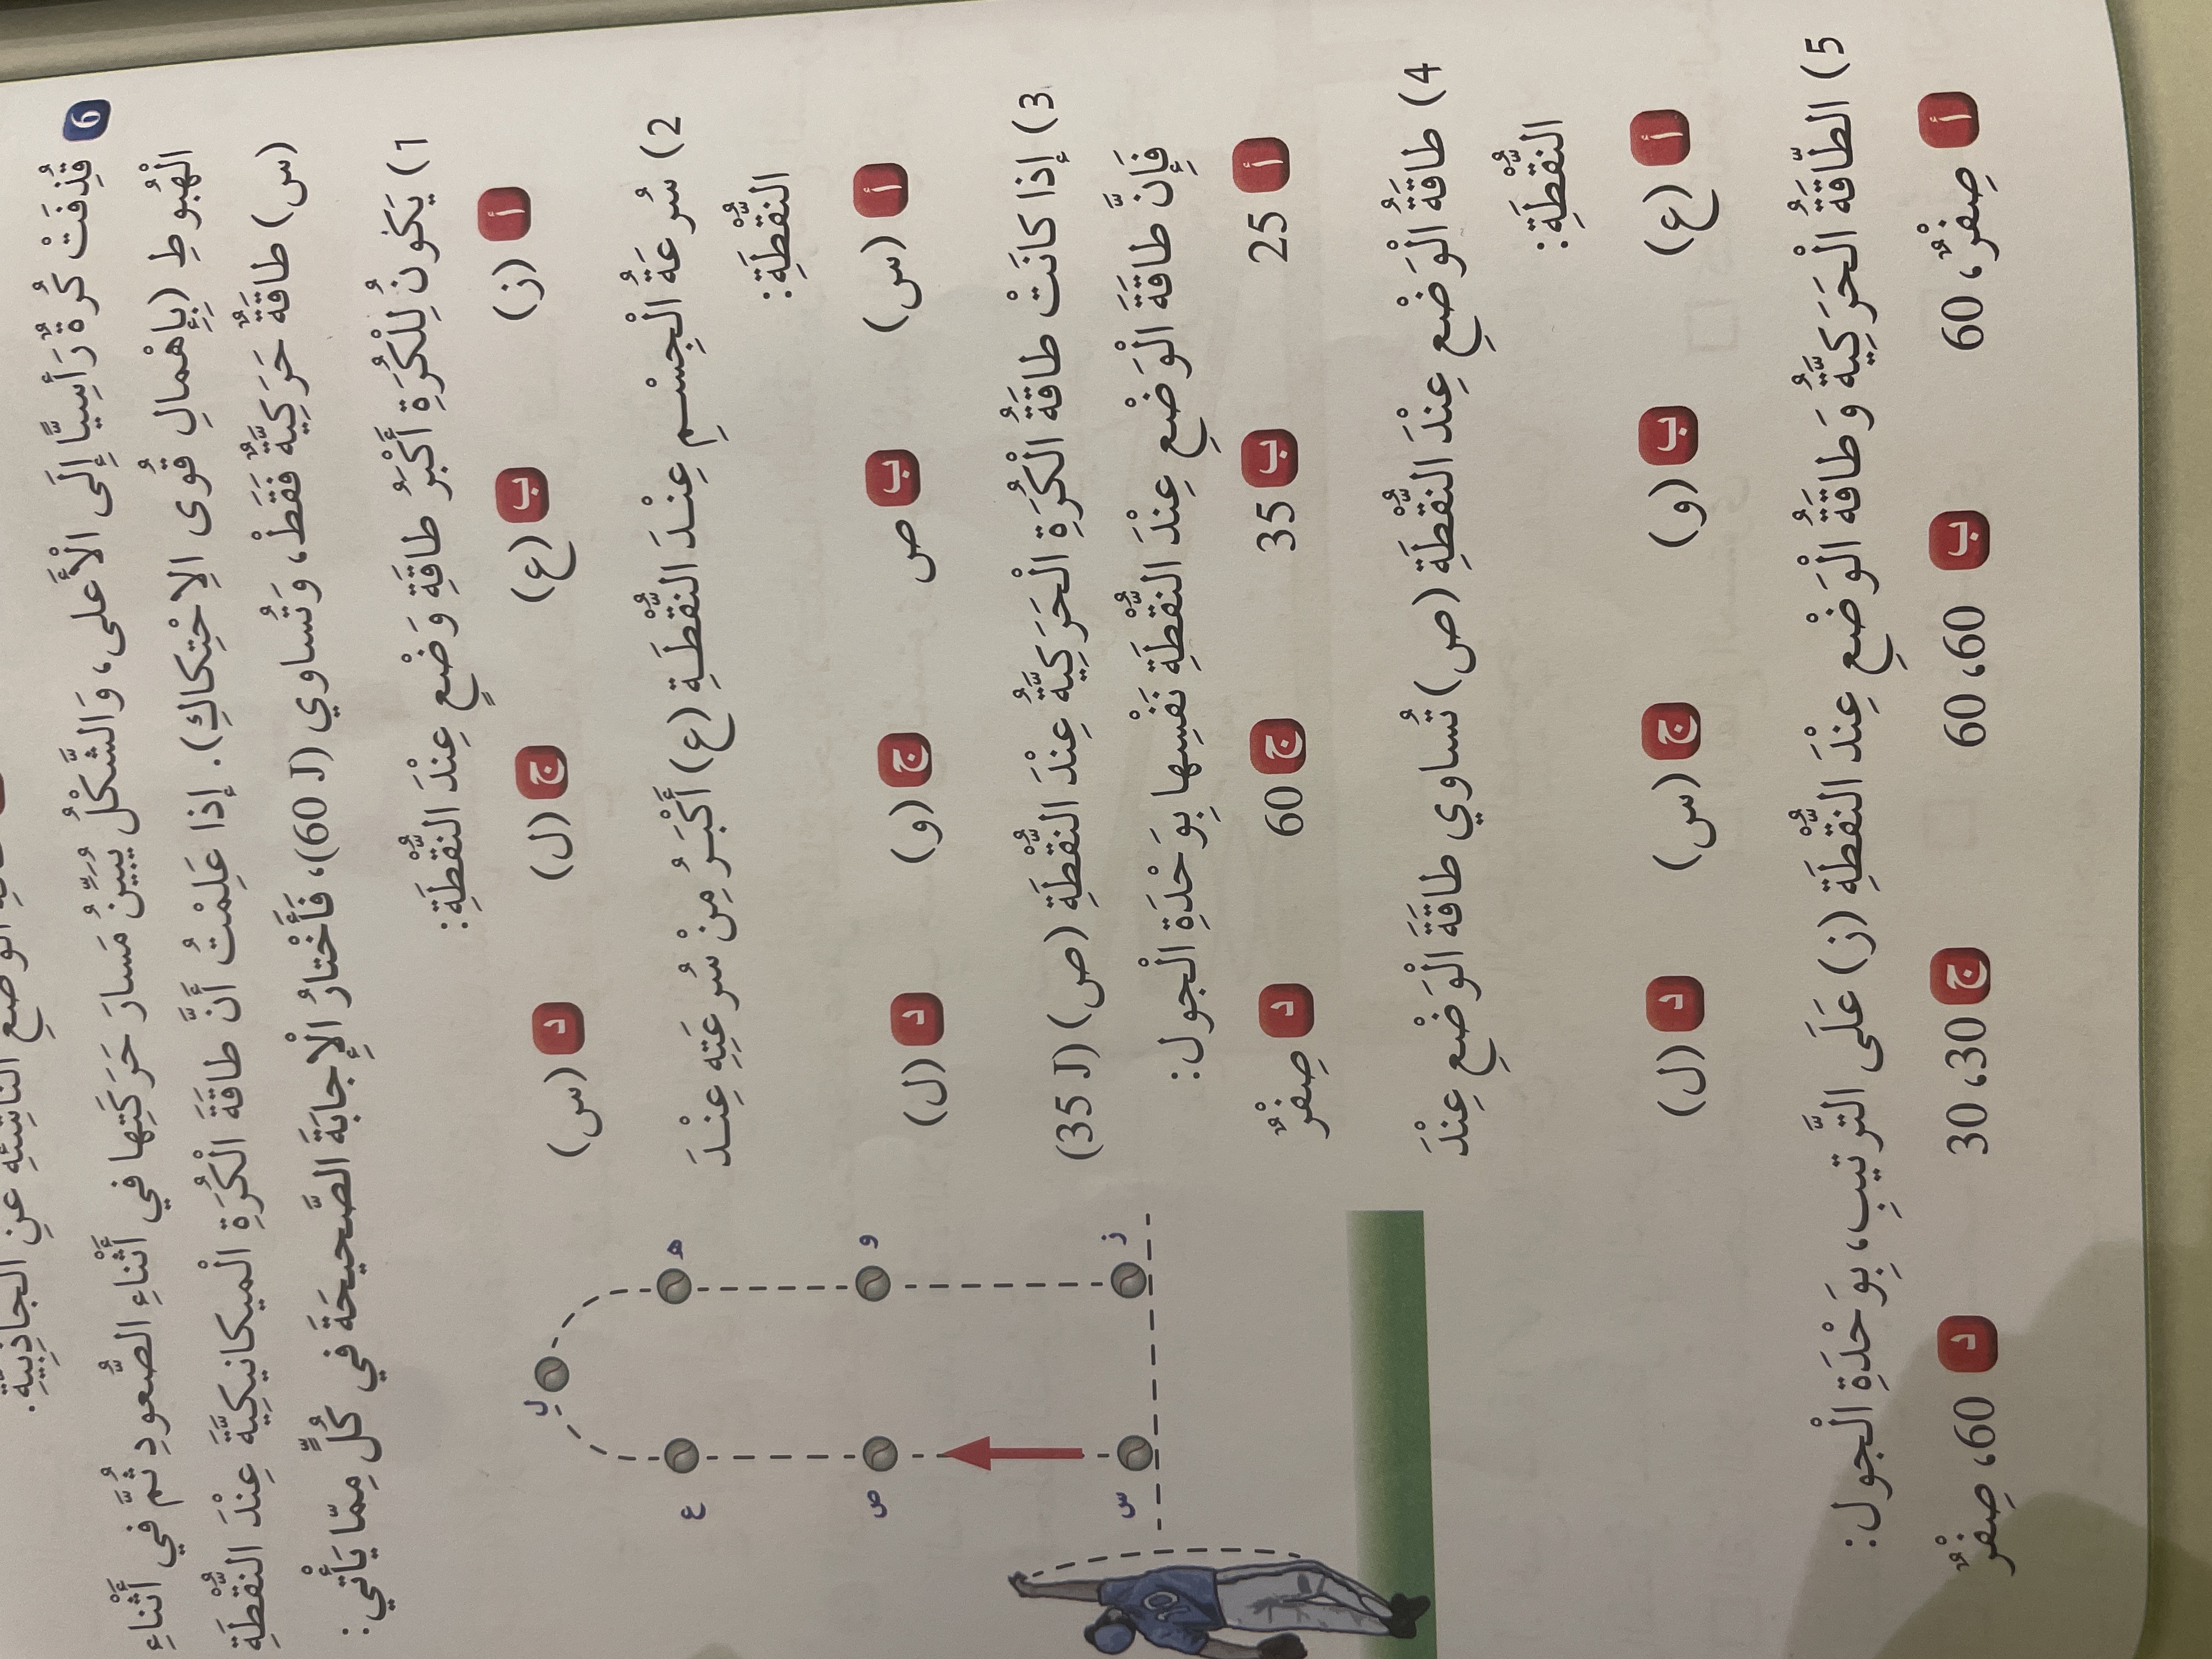 الْوَضْعِ النّاشِئَةِ عَنِ الْجاذِبِيَّةِ.
6 قُذِفَتْ كُرَةٌ رَأْسِيًّا إِلَى الْأَعْلى، وَالشَّكْلُ يُبَيِّنُ مَسارَ حَرَكَتِها في أَثْناءِ الصُّعودِ ثُمَّ في أَثْناءِ
الْهُبُوطِ (بِإِهْمالِ قُوى الِاحْتِكاكِ). إِذا عَلِمْتُ أَنَّ طاقَةَ الْكُرَةِ الْميكانيكِيَّةَ عِنْدَ النُّقْطَةِ
(س) طاقَةٌ حَرَكِيَّةٌ فَقَطْ، وَتُساوي (60 J)، فَأَخْتارُ الْإِجابَةَ الصَّحيحَةَ في كُلٍّ مِمّا يَأْتي:
1) يَكونُ لِلْكُرَةِ أَكْبَرُ طاقَةِ وَضْعٍ عِنْدَ النُّقْطَةِ:
أ (ز) ب (ع) ج (ل) د (س)
2) سُرعَةُ الْجِسْمِ عِنْدَ النُّقْطَةِ (ع) أَكْبَرُ مِنْ سُرعَتِهِ عِنْدَ
النُّقْطَةِ:
أ (س) ب ص ج (و) د (ل)
3) إِذا كانَتْ طاقَةُ الْكُرَةِ الْحَرَكِيَّةُ عِنْدَ النُّقْطَةِ (ص) (35 J)
فَإِنَّ طاقَةَ الْوَضْعِ عِنْدَ النُّقْطَةِ نَفْسِها بِوَحْدَةِ الْجول:
أ 25 ب 35 ج 60 د صِفْرٌ
4) طاقَةُ الْوَضْعِ عِنْدَ النُّقْطَةِ (ص) تُساوي طاقَةَ الْوَضْعِ عِنْدَ
النُّقْطَةِ:
أ (ع) ب (و) ج (س) د (ل)
5) الطّاقَةُ الْحَرَكِيَّةُ وَطاقَةُ الْوَضْعِ عِنْدَ النُّقْطَةِ (ز) عَلَى التَّرْتيبِ، بِوَحْدَةِ الْجول:
أ صِفْرٌ، 60 ب 60، 60 ج 30، 30 د 60، صِفْرٌ
ل
ع
هـ
ص
و
س
ز
10